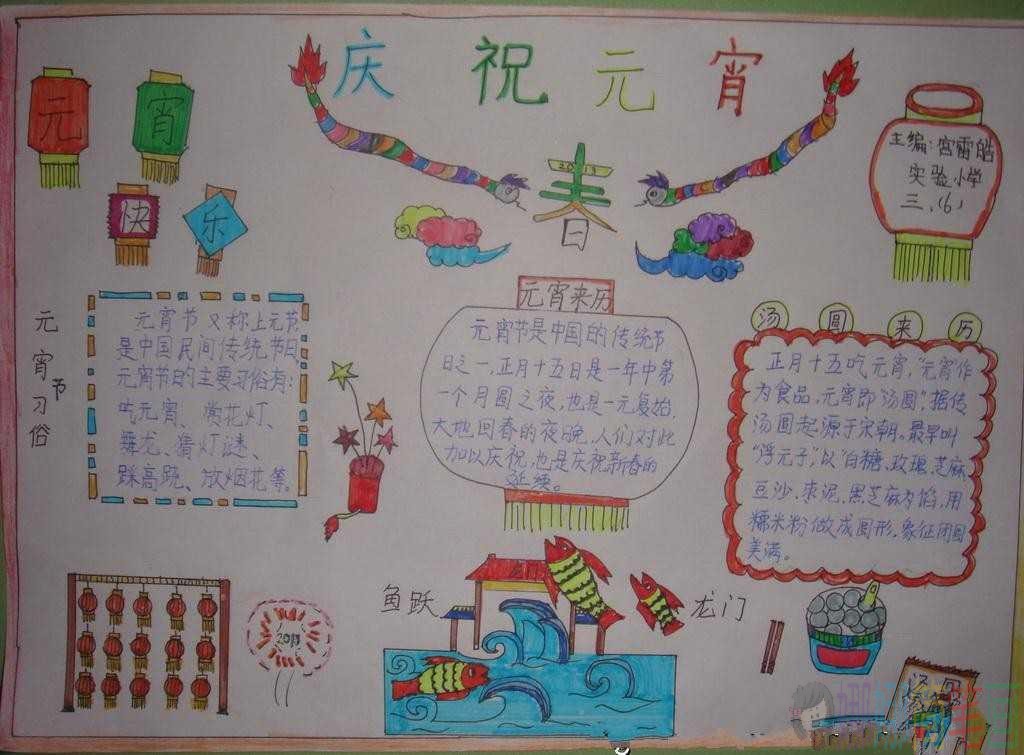 庆祝元宵
元
宵
快
乐
2013
春
主编:宫雷皓
实验小学
三、(6)
元宵节习俗
元宵节又称上元节,
是中国民间传统节日
元宵节的主要习俗有:
吃元宵、赏花灯、
舞龙、猜灯谜、
踩高跷、放烟花等。
元宵来历
元宵节是中国的传统节
日之一,正月十五日是一年中第
一个月圆之夜,也是一元复始,
大地回春的夜晚,人们对此
加以庆祝,也是庆祝新春的
延续。
汤圆来历
正月十五吃元宵,“元宵作
为食品,元宵即“汤圆”,据传
汤圆起源于宋朝,最早叫
“浮元子”以“白糖、玫瑰、芝麻
豆沙、枣泥、黑芝麻为馅,用
糯米粉做成圆形,象征团圆
美满。
鱼跃
龙门
2013
汤圆